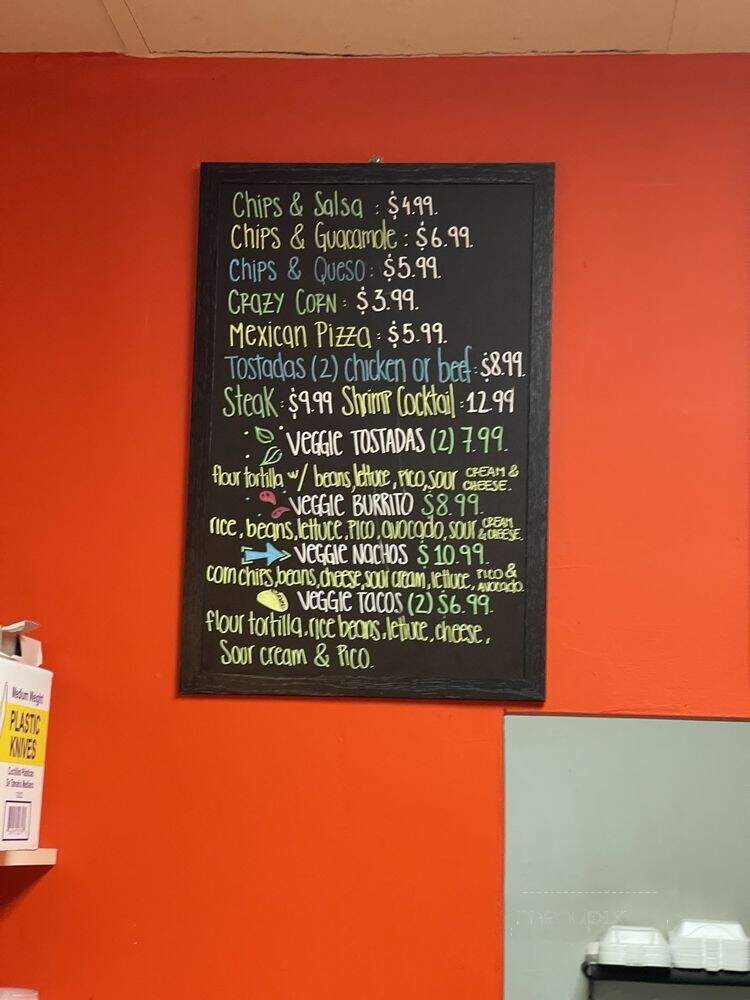 Chips & Salsa : $4.99.
Chips & Guacamole : $6.99.
Chips & Queso : $5.99.
CRAZY CORN : $3.99.
Mexican Pizza : $5.99.
Tostadas (2) chicken or beef : $8.99.
Steak : $9.99 Shrimp Cocktail : 12.99
VEGGIE TOSTADAS (2) 7.99.
flour tortilla w/ beans, lettuce, pico, sour CREAM & CHEESE.
VEGGIE BURRITO $8.99.
rice, beans, lettuce, pico, avocado, sour CREAM & CHEESE.
VEGGIE NACHOS $10.99.
corn chips, beans, cheese, sour cream, lettuce, PICO & AVOCADO.
VEGGIE TACOS (2) $6.99.
flour tortilla, rice beans, lettuce, cheese,
Sour cream & Pico.
Medium Weight
PLASTIC
KNIVES
menupix